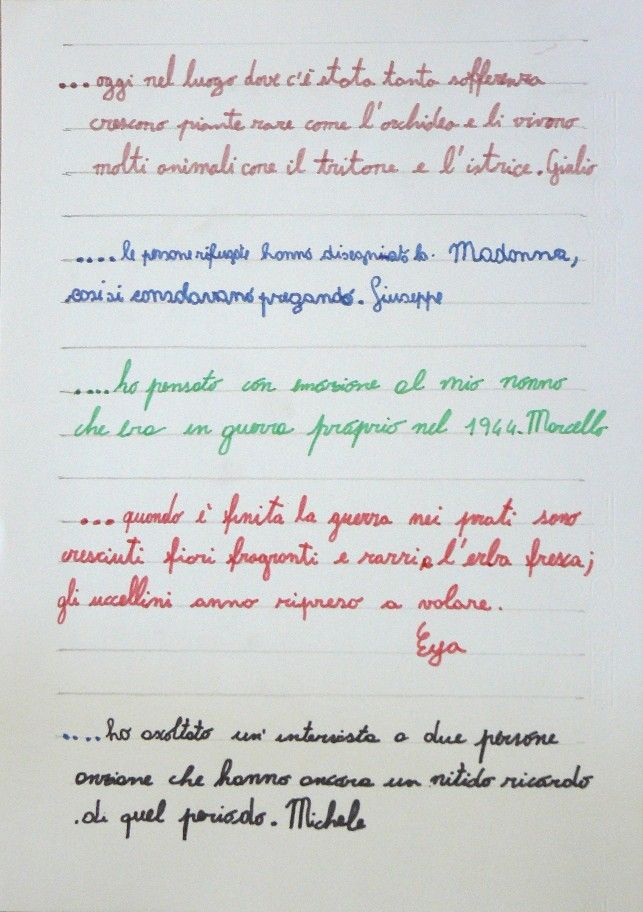 ...oggi nel luogo dove c'è stata tanta sofferenza
crescono piante rare come l'orchidea e li vivono
molti animali come il tritone e l'istrice. Giulio
....le persone rifugiate hanno disegnato la Madonna,
così si consolavano pregando. Giuseppe
....ho pensato con emozione al mio nonno
che era in guerra proprio nel 1944. Marcello
...quando è finita la guerra nei prati sono
cresciuti fiori fragranti e rarri e l'erba fresca;
gli uccellini anno ripreso a volare.
Eya
....ho ascoltato un'intervista a due persone
anziane che hanno ancora un nitido ricordo
di quel periodo. Michele